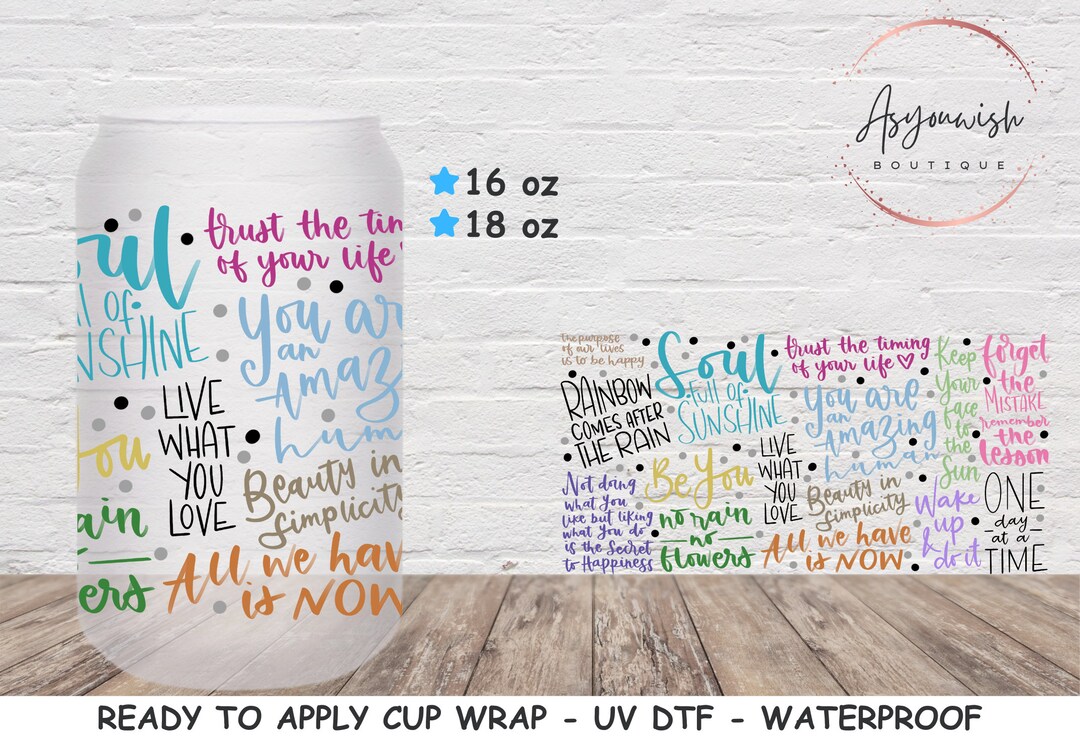 Asyouwish
BOUTIQUE
16 oz
18 oz
oul
l of
NSHINE
trust the tim
of your life
You ar
an
Amaz
hum
LIVE
WHAT
YOU
LOVE
ou
Beauty in
simplicity
ain
ers
All we hav
is NOW
the purpose
of our lives
is to be happy
RAINBOW
COMES AFTER
THE RAIN
Not doing
what you
like but liking
what you do
is the secret
to Happiness
Soul
full of
SUNSHINE
Be You
no rain
no
flowers
trust the timing
of your life
LIVE
WHAT
YOU
LOVE
You are
an
Amazing
human
Beauty in
simplicity
All we have
is NOW
Keep
Your
face
to
the
Sun
Wake
up
& do it
forget
the
MISTAKE
remember
the
lesson
ONE
day
at a
TIME
READY TO APPLY CUP WRAP - UV DTF - WATERPROOF